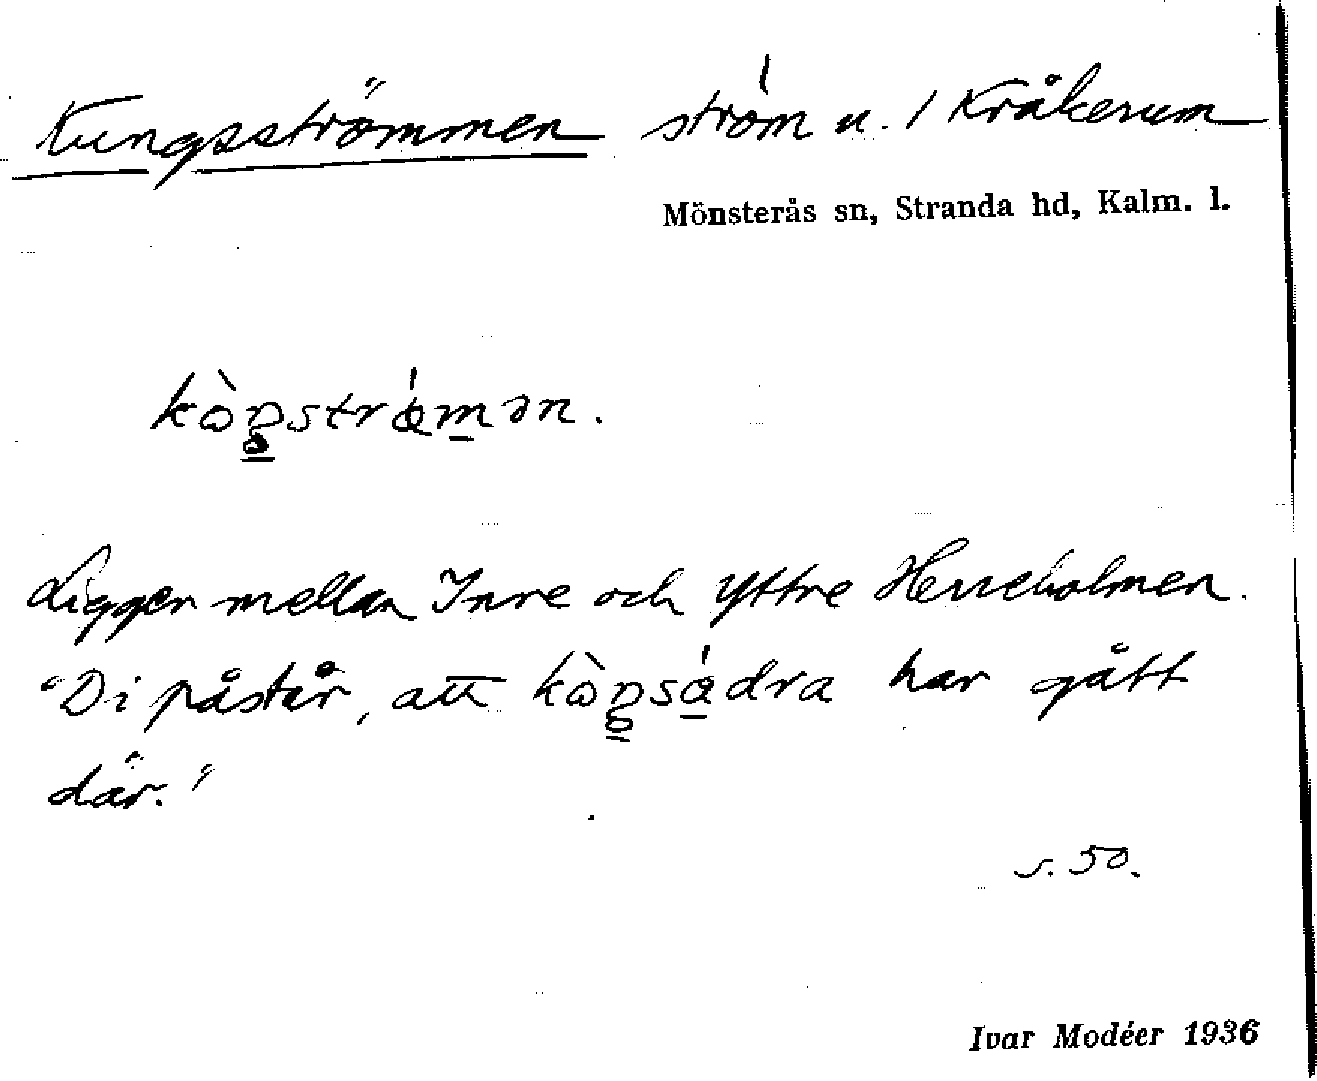 Kungsströmmen ström u. 1 Kråkerum
Mönsterås sn, Stranda hd, Kalm. l.
Ligger mellan Inre och Yttre Herreholmen.
"Di påstår, att har gått
där."
s. 50.
Ivar Modéer 1936